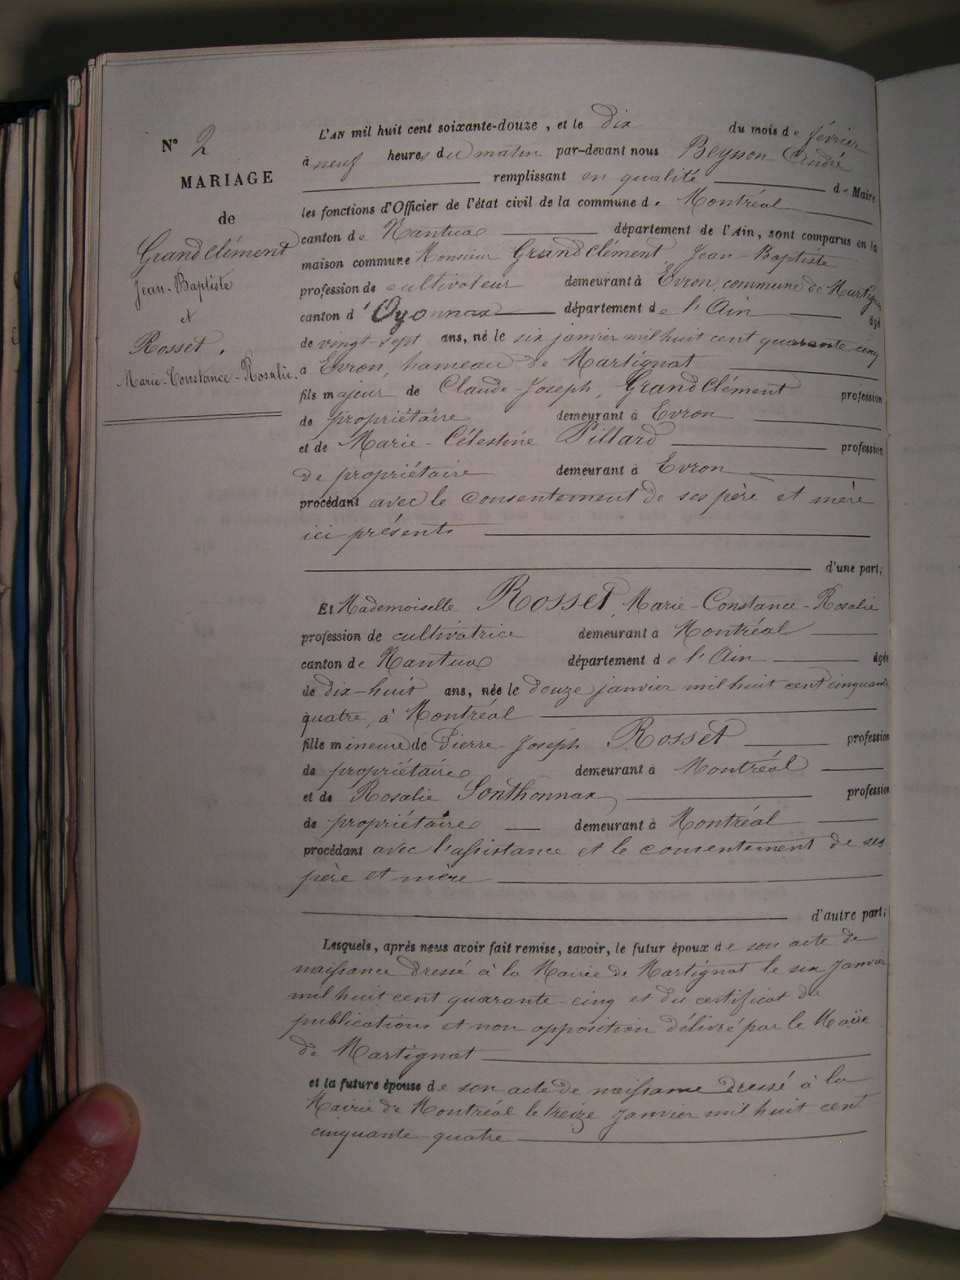 N° 2
MARIAGE
de
Grandclément
Jean-Baptiste
et
Rosset,
Marie-Constance-Rosalie.
L'AN mil huit cent soixante-douze, et le dix du mois de février
à neuf heures du matin par-devant nous Beysson André
remplissant en qualité de Maire
les fonctions d'Officier de l'état civil de la commune de Montréal
canton de Nantua département de l'Ain, sont comparus en la
maison commune Monsieur Grandclément Jean-Baptiste
profession de cultivateur demeurant à Evron, commune de Martignat
canton d'Oyonnax département de l'Ain âgé
de vingt-sept ans, né le six janvier mil huit cent quarante-cinq
à Evron, hameau de Martignat
fils majeur de Claude-Joseph, Grandclément profession
de propriétaire demeurant à Evron
et de Marie-Célestine Pillard profession
de propriétaire demeurant à Evron
procédant avec le consentement de ses père et mère
ici présents
d'une part;
Et Mademoiselle Rosset, Marie-Constance-Rosalie
profession de cultivatrice demeurant à Montréal
canton de Nantua département de l'Ain âgée
de dix-huit ans, née le douze janvier mil huit cent cinquante
quatre, à Montréal
fille mineure de Pierre-Joseph Rosset profession
de propriétaire demeurant à Montréal
et de Rosalie Sonthonnax profession
de propriétaire demeurant à Montréal
procédant avec l'assistance et le consentement de ses
père et mère
d'autre part;
Lesquels, après nous avoir fait remise, savoir, le futur époux de son acte de
naissance dressé à la Mairie de Martignat le six janvier
mil huit cent quarante-cinq et du certificat de
publications et non opposition délivré par le Maire
de Martignat
et la future épouse de son acte de naissance dressé à la
Mairie de Montréal le treize janvier mil huit cent
cinquante-quatre